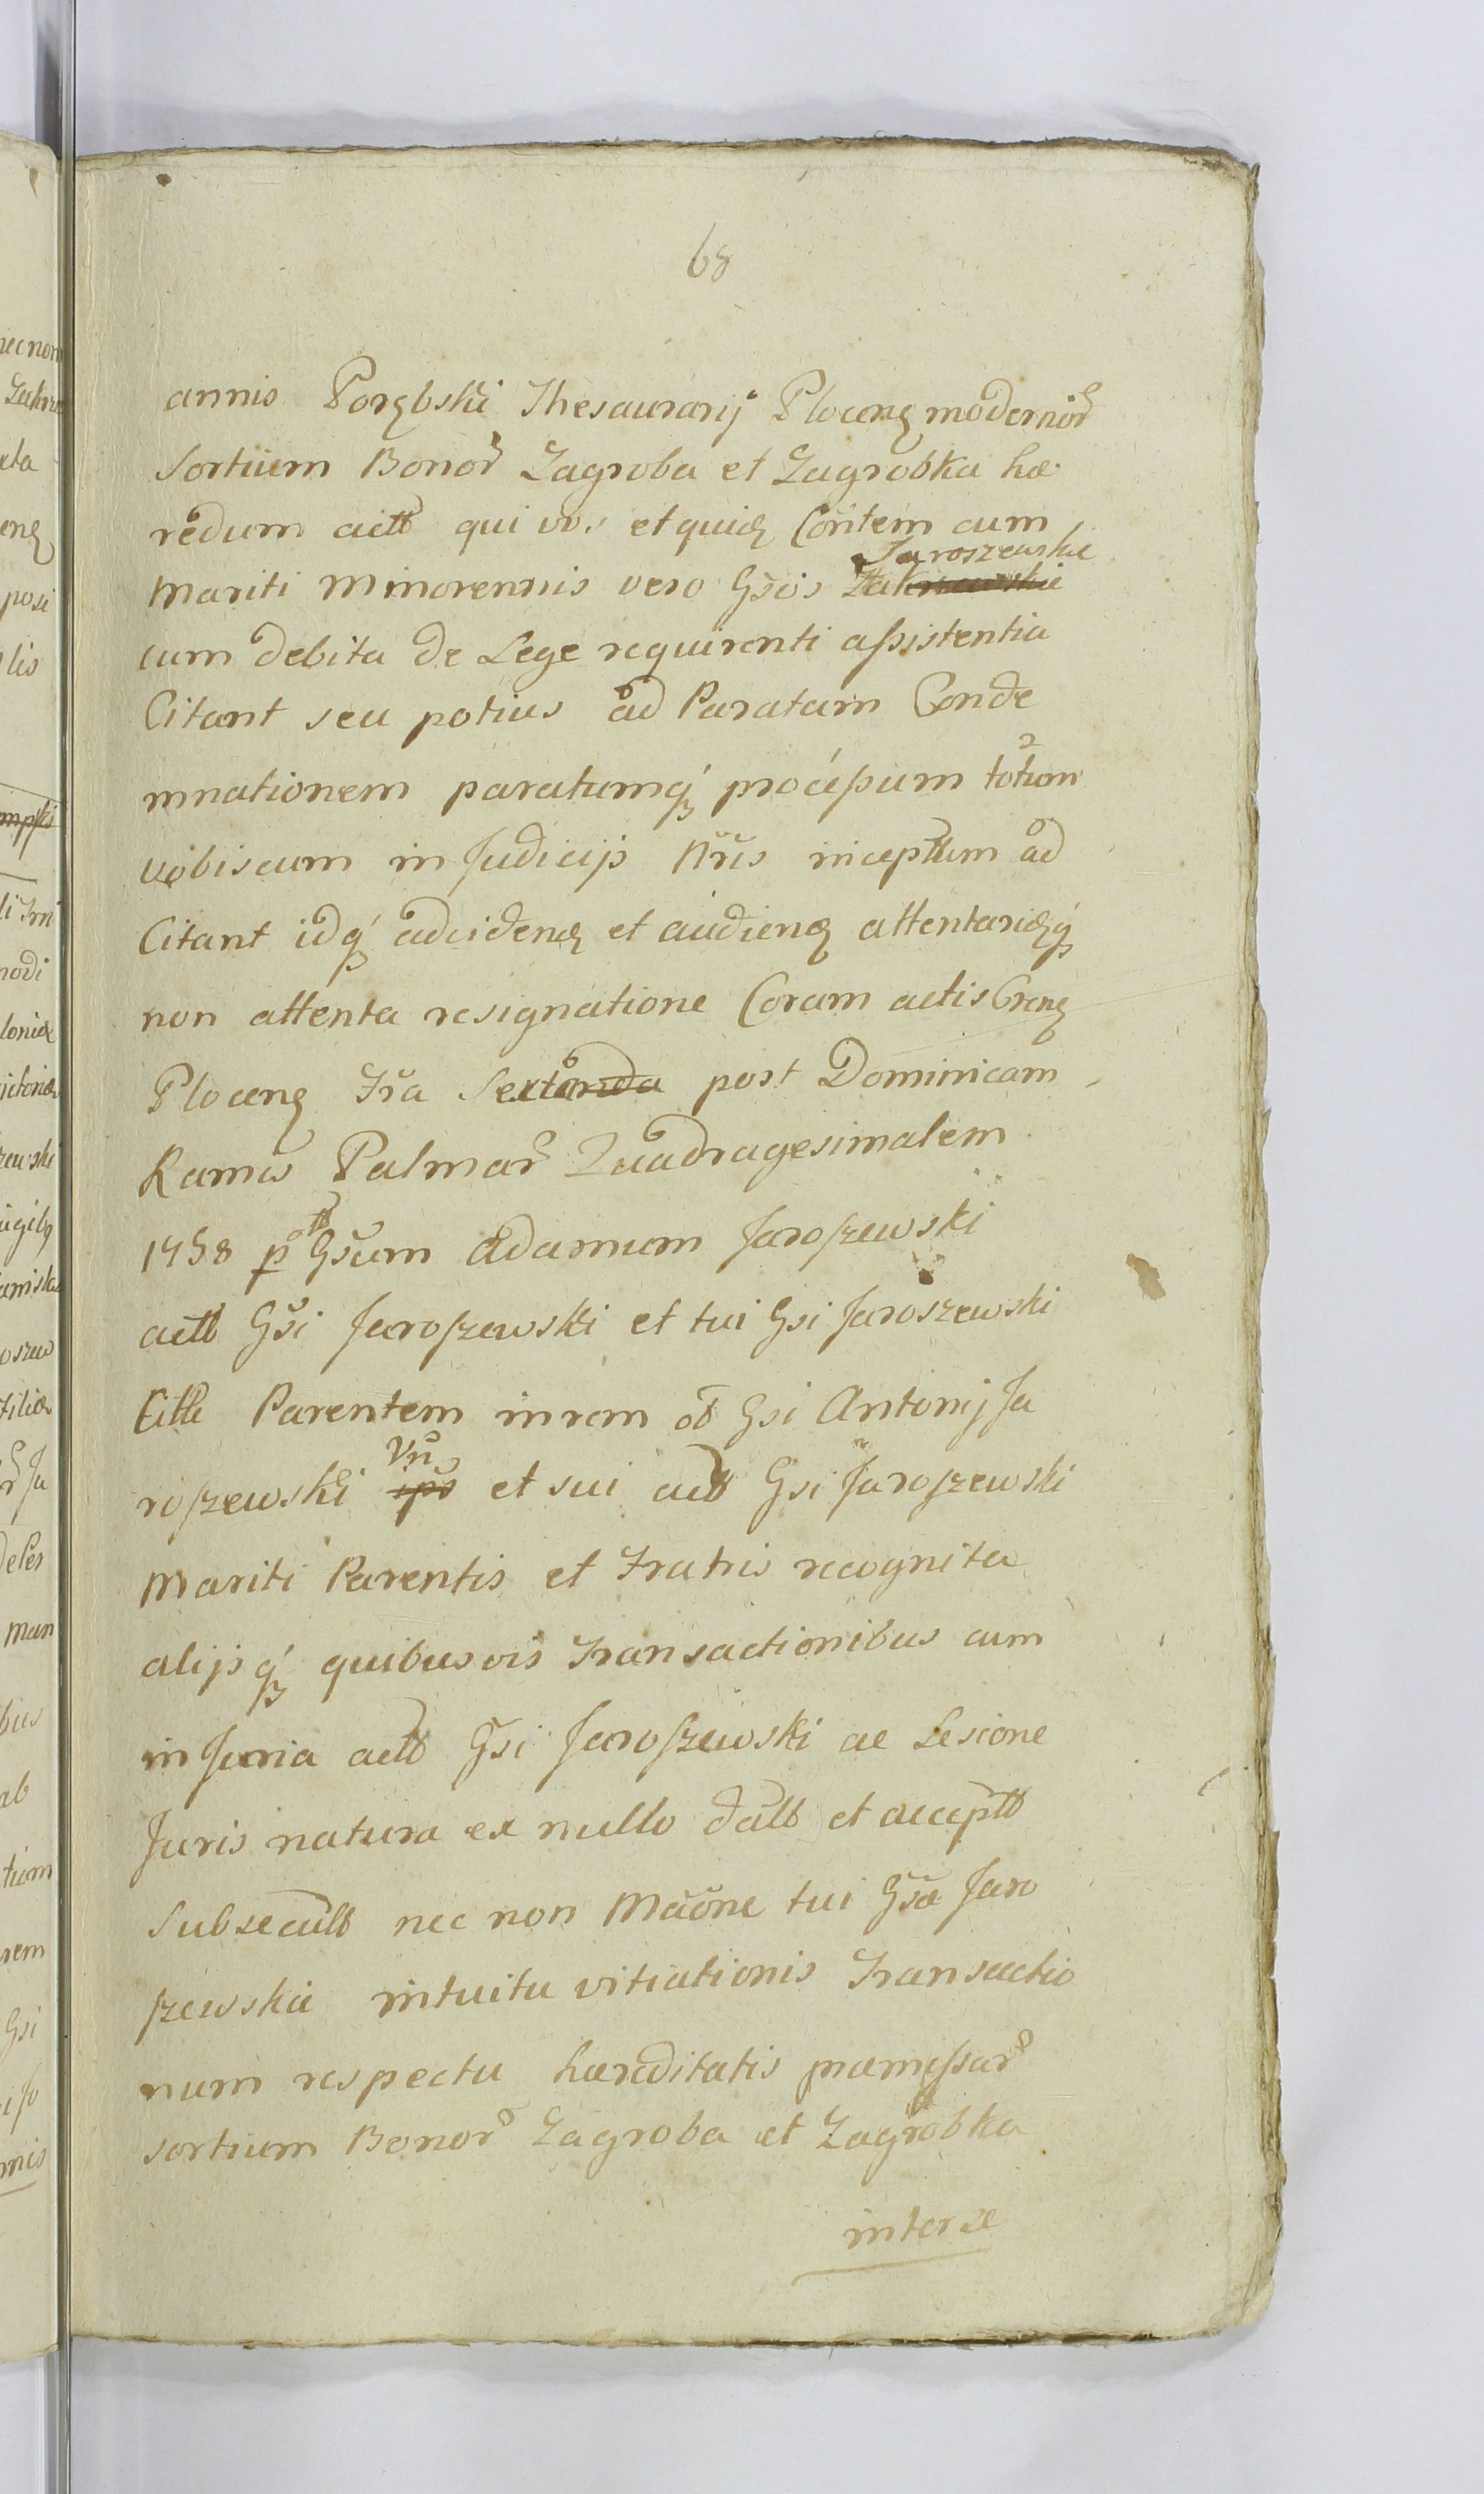 68
annis Porębski Thesaurarij Plocenȩ moderñor
Sortium Bonor Zagroba et Zagrobka hæ
redum actt qui vos et quidȩ Contem cum
Jaroszewskie
Mariti Minorennis vero Gsos Zakrzewskie
cum debita de Lege requirenti assistentia
Citant seu potius ad Paratam Conde
mnationem paratumq́ processum totum
vobiscum in Judicijs Nris inceptum ad
Citant idq́ ad videnȩ et audienȩ attentarieq́
non attenta resignatione Coram actis Crenȩ
Plocenȩ Fra Sextanda post Dominicam
Ramis Palmar Quadragesimalem
1758 p ott Gsum Adamum Jaroszewski
actt Gsi Jaroszewski et tui Gsi Jaroszewski
Citti Parentem in rem ot Gsi Antonij Ja
Vñ
roszewski ips et sui actt Gsi Jaroszewski
Mariti Parentis et Fratris recognita
alijsq́ quibusvis Transactionibus cum
in Juria actt Gsi Jaroszewski ac Lesione
Juris natura ex nullo datt et acceptt
Subsecutt nec non Mãone tui Gsæ Jaro
szewskie intuitu vitiationis Transactio
num respectu hæreditatis præmissar
sortium Bonor Zagroba et Zagrobka
inter se